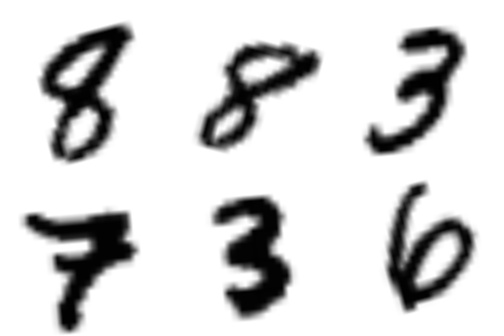 8 8 3
7 3 6